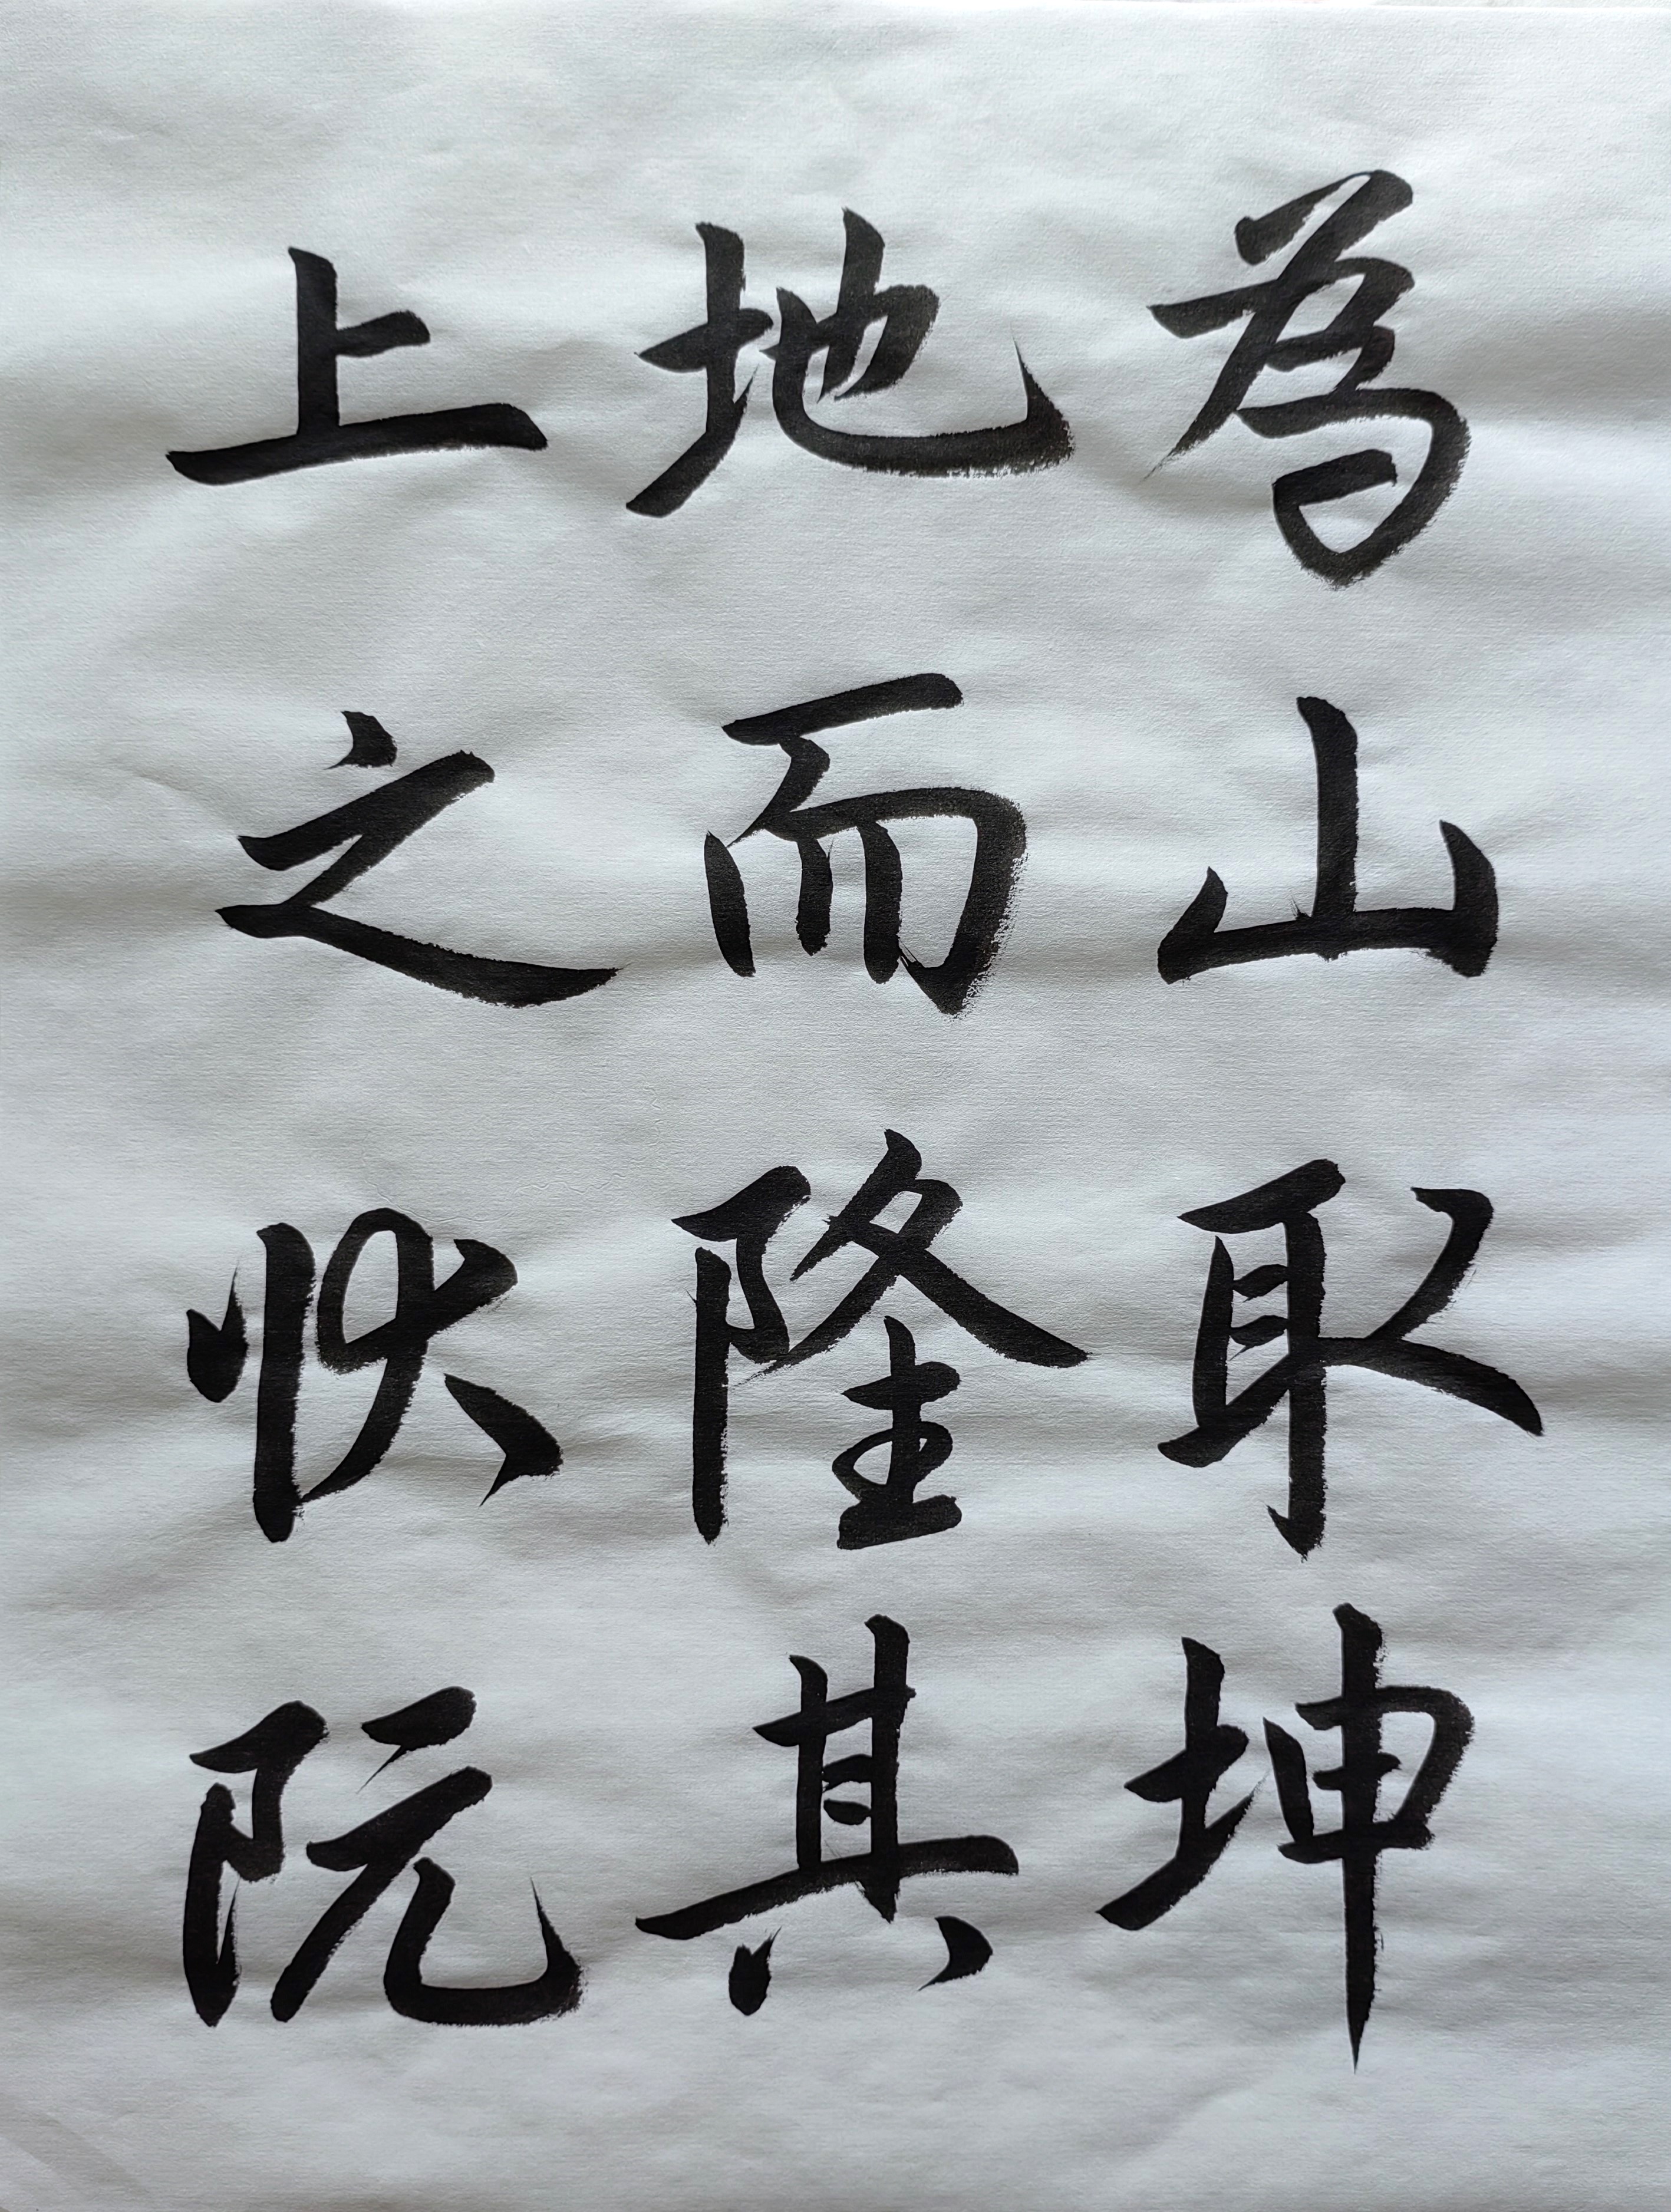 為山取坤
地而隆其
上之状阮